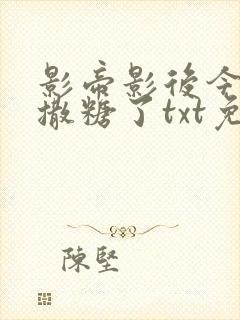 影帝影後今
撒糖了txt免
陳堅